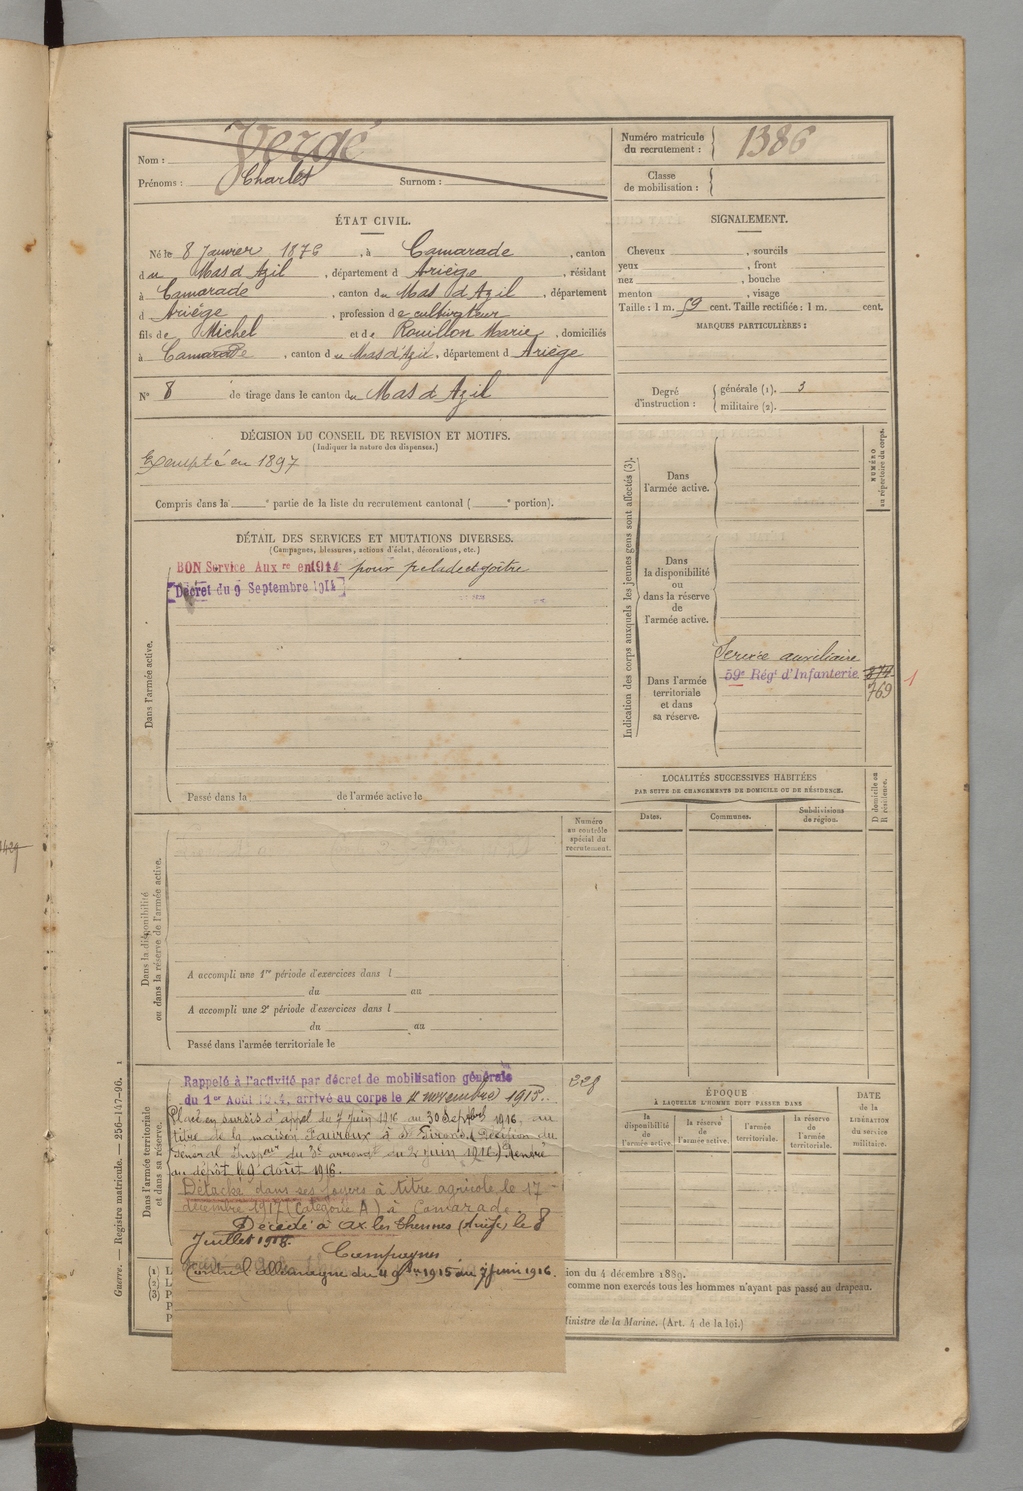 Nom : Vergé
Prénoms : Charles Surnom :
Numéro matricule du recrutement : 1386
Classe de mobilisation :
ÉTAT CIVIL.
Né le 8 Janvier 1876, à Camarade, canton
du Mas d'Azil, département d Ariège, résidant
à Camarade, canton du Mas d'Azil, département
d Ariège, profession de cultivateur
fils de Michel et de Rouillon Marie, domiciliés
à Camarade, canton du Mas d'Azil, département d Ariège
N° 8 de tirage dans le canton du Mas d'Azil
SIGNALEMENT.
Cheveux , sourcils
yeux , front
nez , bouche
menton , visage
Taille : 1 m. 59 cent. Taille rectifiée : 1 m. cent.
MARQUES PARTICULIÈRES :
Degré d'instruction : générale (1). 3
militaire (2).
DÉCISION DU CONSEIL DE REVISION ET MOTIFS.
(Indiquer la nature des dispenses.)
Exempté en 1897
Compris dans la e partie de la liste du recrutement cantonal ( e portion).
DÉTAIL DES SERVICES ET MUTATIONS DIVERSES.
(Campagnes, blessures, actions d'éclat, décorations, etc.)
BON Service Aux re en 1914 pour pelade et goître
Décret du 9 Septembre 1914
Dans l'armée active.
Passé dans la de l'armée active le
Indication des corps auxquels les jeunes gens sont affectés (3).
NUMÉRO au répertoire du corps.
Dans l'armée active.
Dans la disponibilité ou dans la réserve de l'armée active.
Dans l'armée territoriale et dans sa réserve.
Service auxiliaire
59e Rég t d'Infanterie 874
769
1
LOCALITÉS SUCCESSIVES HABITÉES
PAR SUITE DE CHANGEMENTS DE DOMICILE OU DE RÉSIDENCE.
D domicile ou R résidence.
Dates. Communes. Subdivisions de région.
Numéro au contrôle spécial du recrutement.
Dans la disponibilité ou dans la réserve de l'armée active.
A accompli une 1re période d'exercices dans l
du au
A accompli une 2e période d'exercices dans l
du au
Passé dans l'armée territoriale le
Dans l'armée territoriale et dans sa réserve.
Rappelé à l'activité par décret de mobilisation générale
du 1er Août 1914, arrivé au corps le 4 novembre 1915.
228
Placé en sursis d'appel du 7 juin 1916 au 30 Septbre 1916, au
titre de la maison Fauroux à St Girons (Décision du
Général Inspr du 3e arrondt du 2 juin 1916) Rentré
au dépôt le 9 août 1916.
Détaché dans ses foyers à titre agricole le 17
décembre 1917 (Catégorie A) à Camarade.
Décédé à Ax les Thermes (Ariège) le 8
Juillet 1918.
Campagnes
Contre l'allemagne du 4 9bre 1915 au 7 juin 1916.
ÉPOQUE
À LAQUELLE L'HOMME DOIT PASSER DANS
la disponibilité de l'armée active. la réserve de l'armée active. l'armée territoriale. la réserve de l'armée territoriale.
DATE de la LIBÉRATION du service militaire.
(1) L
(2) L
(3) P
P
ion du 4 décembre 1889.
comme non exercés tous les hommes n'ayant pas passé au drapeau.
Ministre de la Marine. (Art. 4 de la loi.)
Guerre. — Registre matricule. — 256-147-96. 1